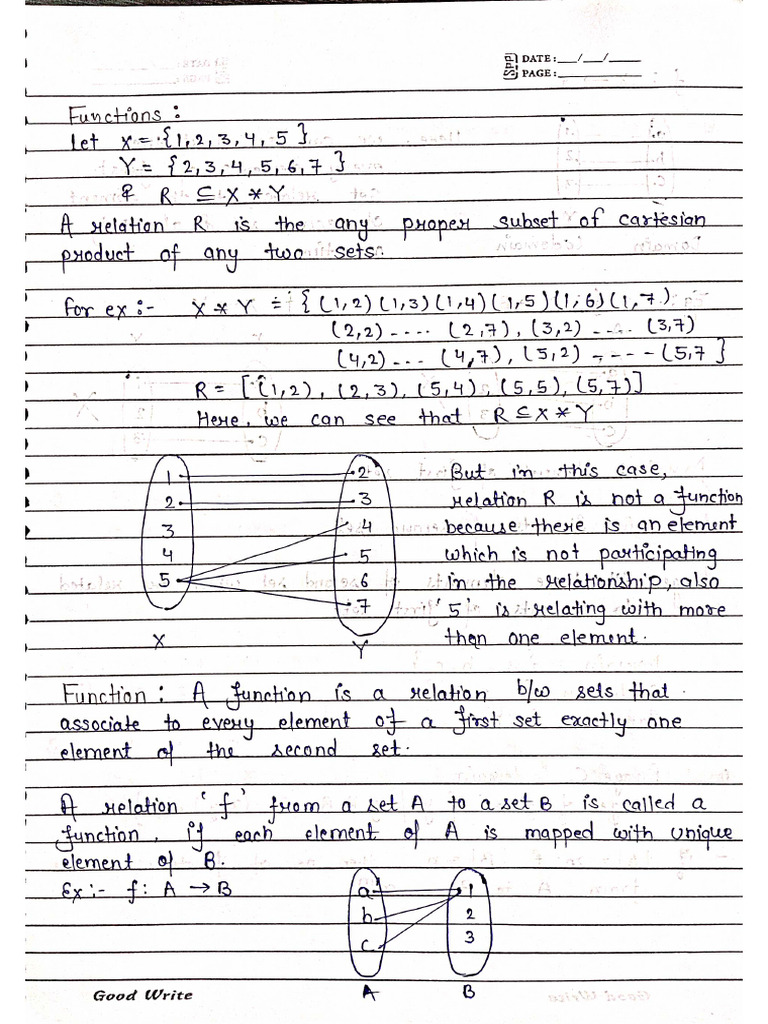 DATE: __/__/____
PAGE: ________
Functions:
Let X = {1, 2, 3, 4, 5}
Y = {2, 3, 4, 5, 6, 7}
& R ⊆ X * Y
A relation R is the any proper subset of cartesian
product of any two sets.
For ex:- X * Y = {(1,2)(1,3)(1,4)(1,5)(1,6)(1,7)
(2,2) .... (2,7), (3,2) .... (3,7)
(4,2)... (4,7), (5,2) ---- (5,7}
R = [(1,2), (2,3), (5,4), (5,5), (5,7)]
Here, we can see that R ⊆ X * Y
1 2 But in this case,
2 3 relation R is not a function
3 4 because there is an element
4 5 which is not participating
5 6 in the relationship, also
7 '5' is relating with more
X Y than one element.
Function: A function is a relation b/w sets that
associate to every element of a first set exactly one
element of the second set.
A relation 'f' from a set A to a set B is called a
function, if each element of A is mapped with unique
element of B.
Ex:- f: A → B a 1
b 2
c 3
Good Write A B